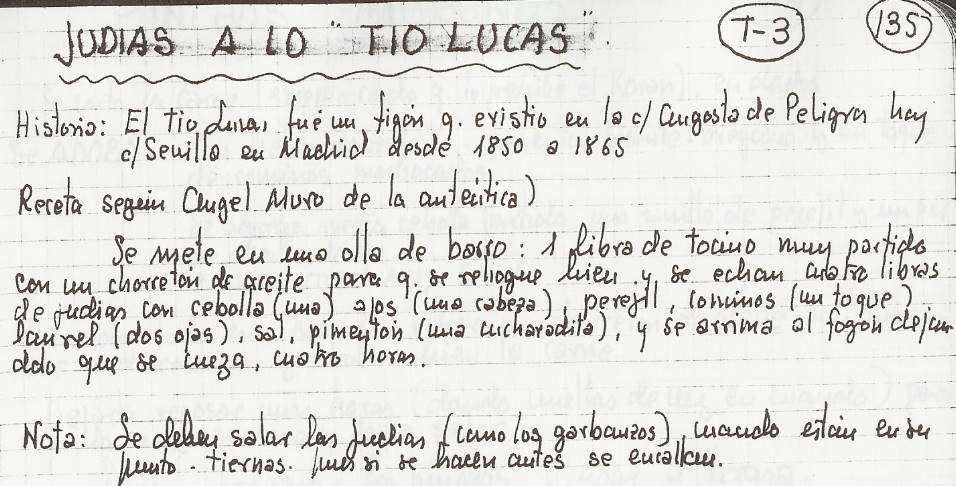 JUDIAS A LO "TIO LUCAS". T-3 135
Historia: El Tio Lucas, fué un figón q. existio en la c/ Angosta de Peligros hoy
c/ Sevilla en Madrid desde 1850 a 1865
Receta según Angel Muro de la autentica)
Se mete en una olla de barro: 1 libra de tocino muy partido
con un chorretón de aceite para q. se rehogue bien y se echan cuatro libras
de judias con cebolla (una) ajos (una cabeza), perejil, cominos (un toque)
laurel (dos ojas), sal, pimentón (una cucharadita), y se arrima al fogón dejan
dolo que se cueza, cuatro horas.
Nota: Se deben salar las judias (como los garbanzos) cuando están en su
punto - tiernas. pues si se hacen antes se encallan.